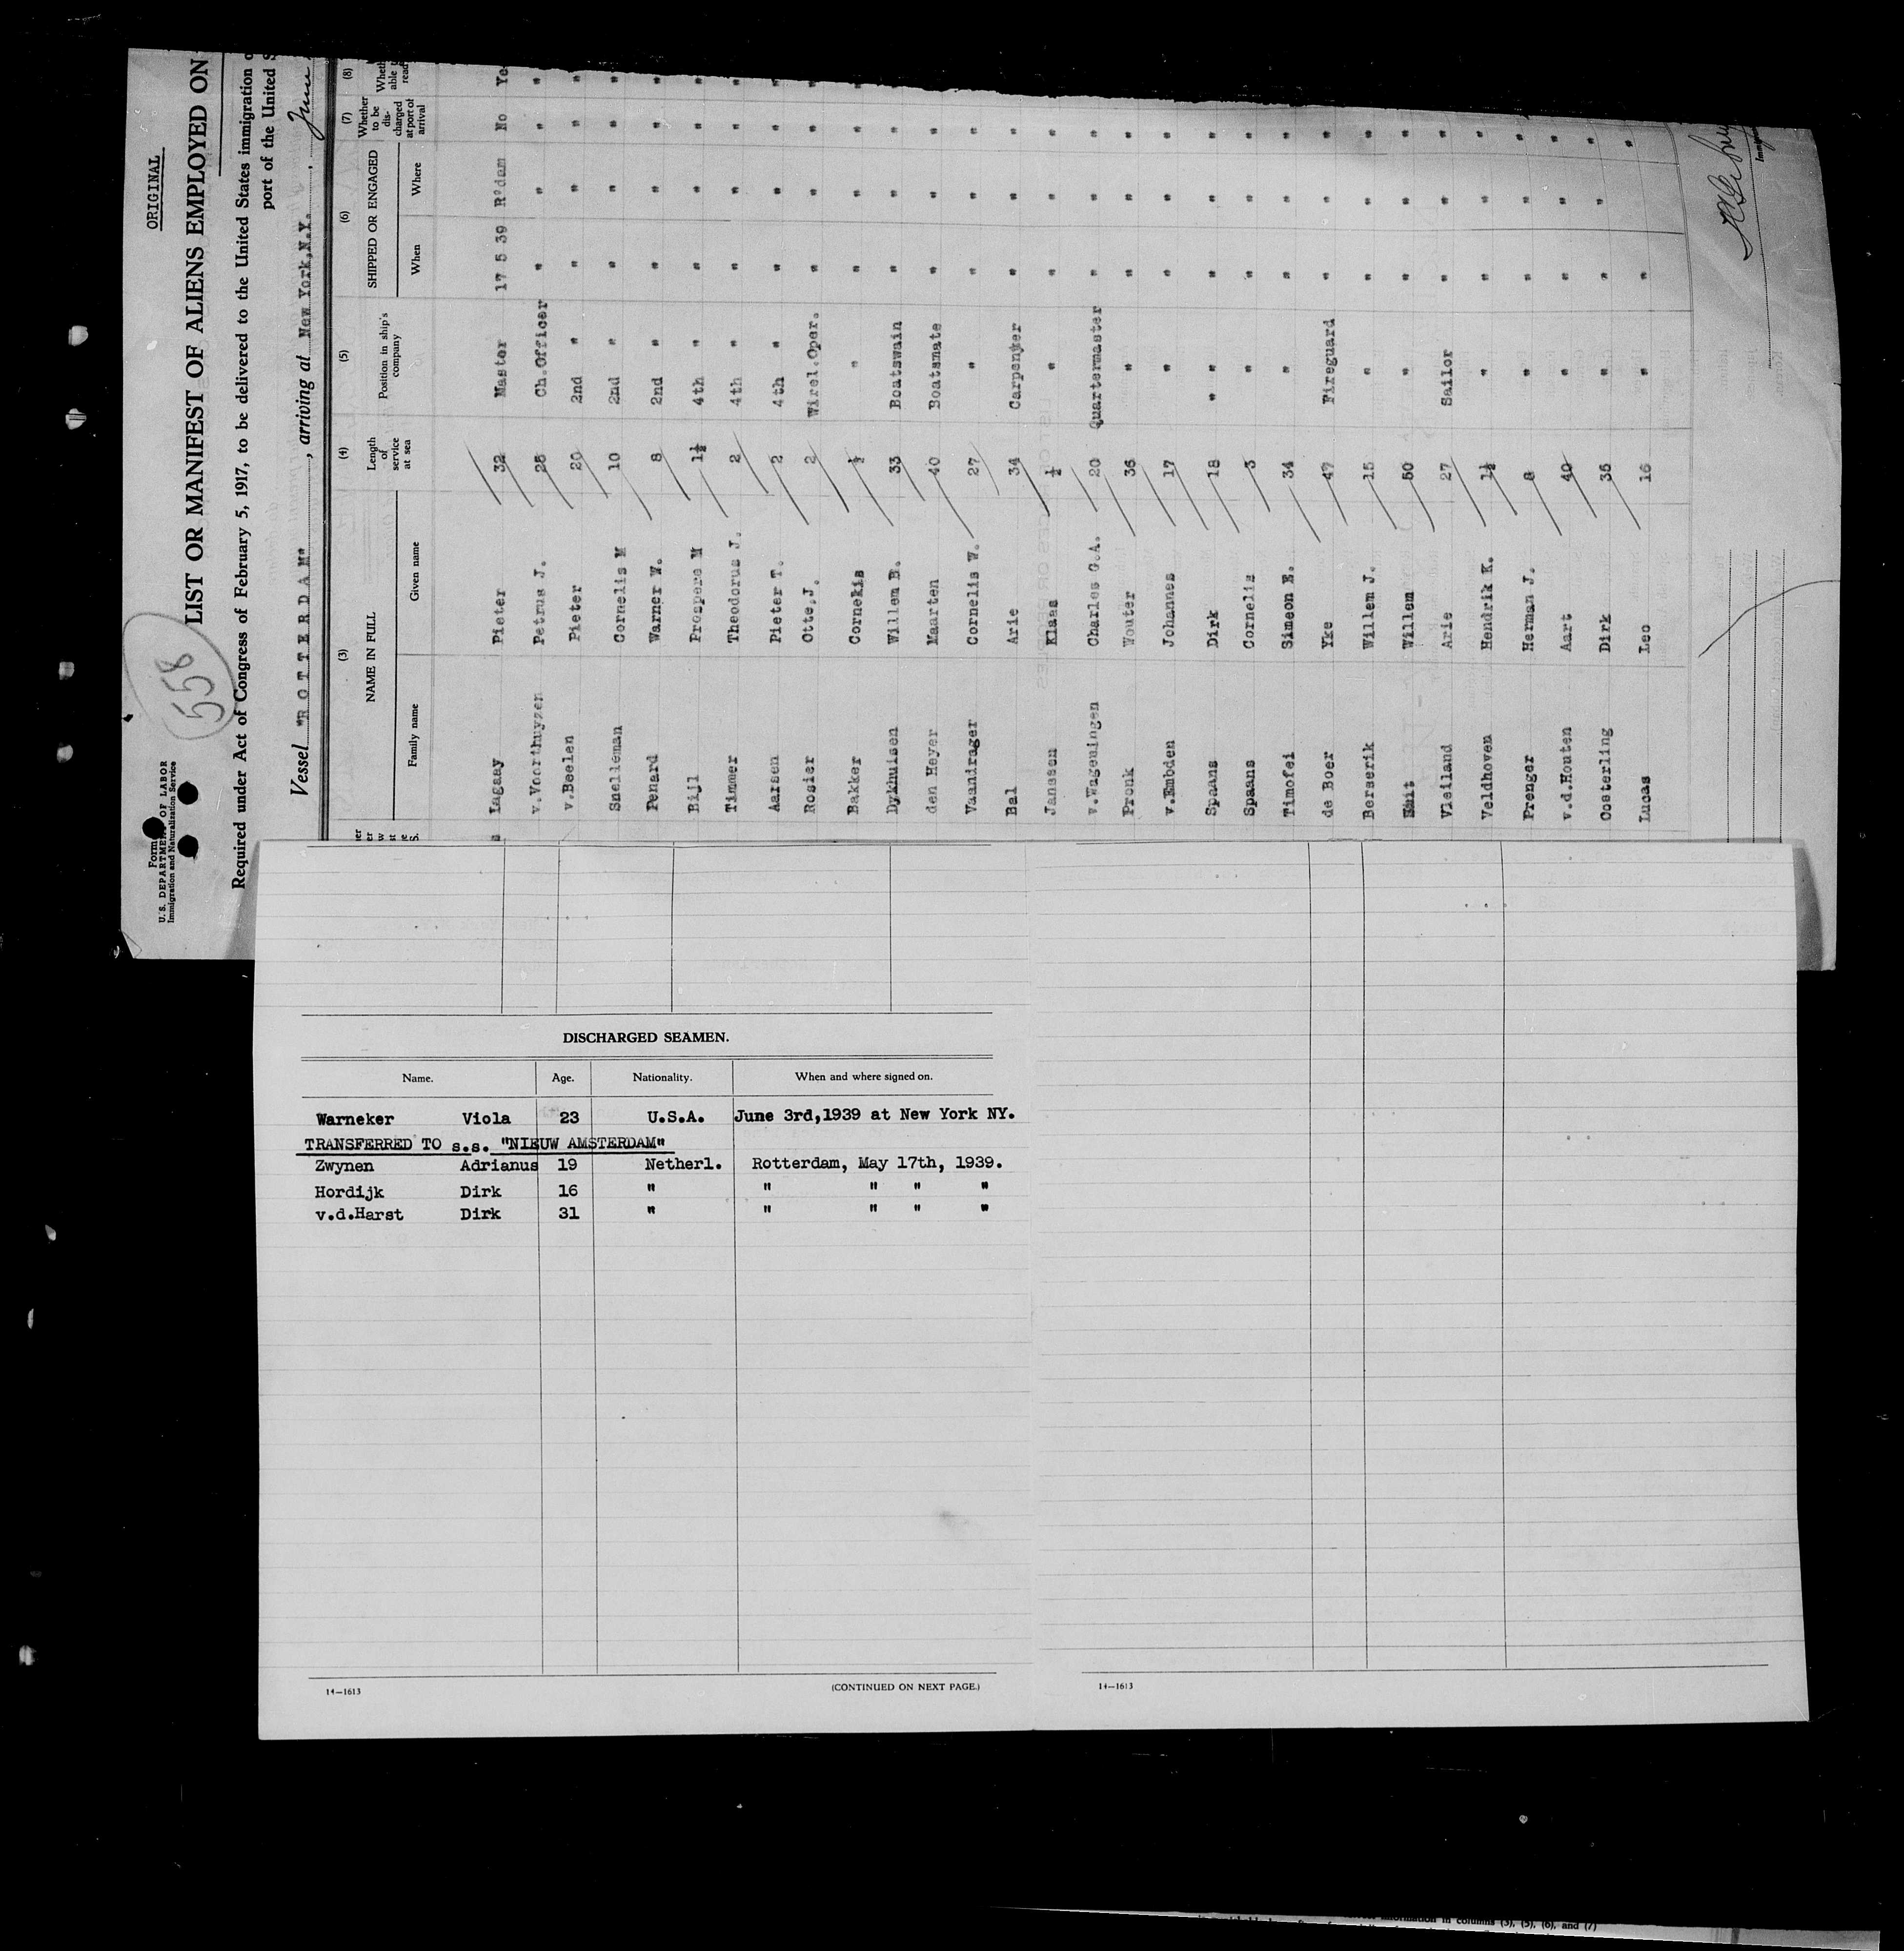 ORIGINAL
Form
U. S. DEPARTMENT OF LABOR
Immigration and Naturalization Service
558
LIST OR MANIFEST OF ALIENS EMPLOYED ON
Required under Act of Congress of February 5, 1917, to be delivered to the United States immigration
port of the United S
Vessel "ROTTERDAM", arriving at New York, N.Y., June
(3) (4) (5) (6) (7) (8)
NAME IN FULL Length of service at sea Position in ship's company SHIPPED OR ENGAGED Whether to be discharged at port of arrival
Family name Given name When Where
Lagaay Pieter 32 Master 17 5 39 R'dam No Ye
v.Voorthuyzen Petrus J. 25 Ch.Officer " " " "
v.Beelen Pieter 20 2nd " " " " "
Snelleman Cornelis M 10 2nd " " " " "
Penard Warner W. 8 2nd " " " " "
Bijl Prospere M 1½ 4th " " " " "
Timmer Theodorus J. 2 4th " " " " "
Aarsen Pieter T. 2 4th " " " " "
Rosier Otte,J. 2 Wirel.Oper. " " " "
Bakker Cornelis ½ " " " " "
Dykhuisen Willem B. 33 Boatswain " " "
den Heyer Maarten 40 Boatsmate " " "
Vaandrager Cornelis W. 27 " " " "
Bal Arie 34 Carpenter " " "
Janssen Klaas ½ " " " "
v.Wageningen Charles G.A. 20 Quartermaster " " "
Pronk Wouter 36 " " " "
v.Embden Johannes 17 " " " "
Spaans Dirk 18 " " " " "
Spaans Cornelis 3 " " " "
Timofei Simeon E. 34 " " " "
de Boer Yke 47 Fireguard " " "
Berserik Willem J. 15 " " " "
Willem 50 " " " "
Vleiland Arie 27 Sailor " " "
Veldhoven Hendrik K. 1½ " " " "
Prenger Herman J. 8 " " " "
v.d.Houten Aart 40 " " " "
Oosterling Dirk 35 " " " "
Lucas Leo 16 " " "
DISCHARGED SEAMEN.
Name. Age. Nationality. When and where signed on.
Warneker Viola 23 U.S.A. June 3rd,1939 at New York NY.
TRANSFERRED TO s.s. "NIEUW AMSTERDAM"
Zwynen Adrianus 19 Netherl. Rotterdam, May 17th, 1939.
Hordijk Dirk 16 " " " " "
v.d.Harst Dirk 31 " " " " "
14—1613 (CONTINUED ON NEXT PAGE.) 14—1613
information in columns (3), (5), (6), and (7)